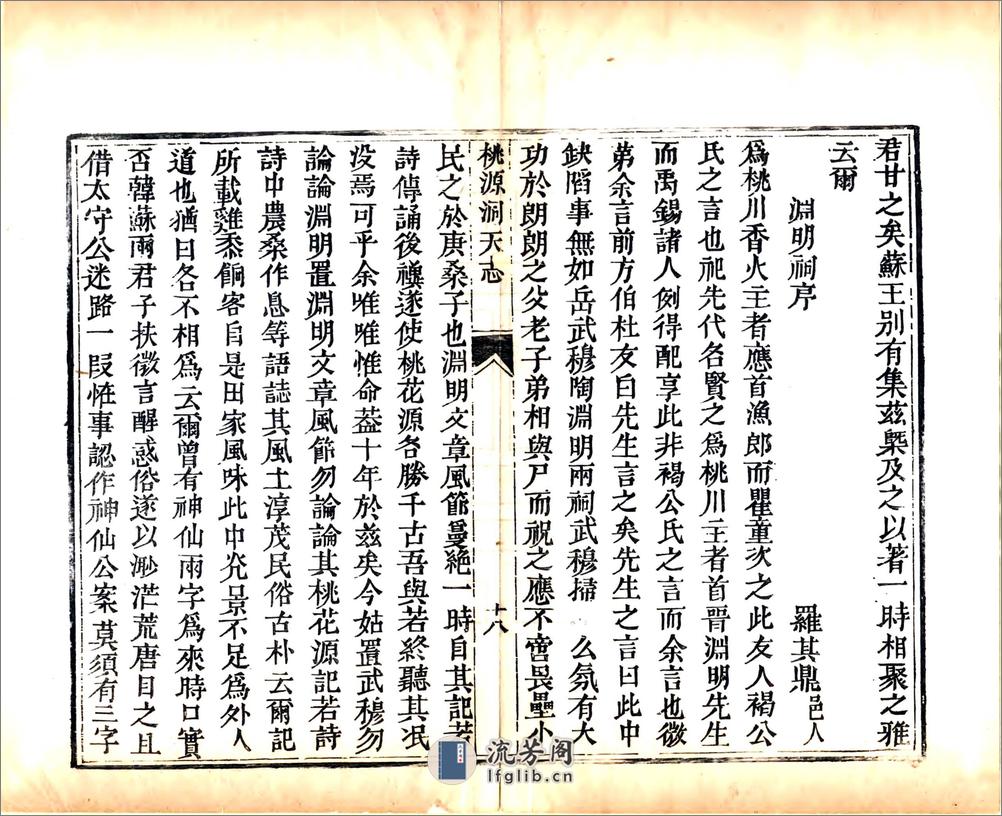 君甘之矣蘇王別有集茲槩及之以著一時相聚之雅
云爾
淵明祠序 羅其鼎邑人
爲桃川香火主者應首漁郎而瞿童次之此友人褐公
氏之言也祀先代名賢之爲桃川主者首晉淵明先生
而禹錫諸人例得配享此非褐公氏之言而余言也徵
第余言前方伯杜友曰先生言之矣先生之言曰此中
缺陷事無如岳武穆陶淵明兩祠武穆掃 么氛有大
功於朗朗之父老子弟相與尸而祝之應不啻畏壘小
桃源洞天志 十八
民之於庚桑子也淵明文章風節曼絶一時自其記若
詩傳誦後禩遂使桃花源各勝千古吾與若終聽其泯
没焉可乎余唯唯惟命葢十年於茲矣今姑置武穆勿
論論淵明置淵明文章風節勿論論其桃花源記若詩
詩中農桑作息等語誌其風土淳茂民俗古朴云爾記
所載雞黍餉客自是田家風味此中光景不足爲外人
道也猶曰各不相爲云爾曾有神仙兩字爲來時口實
否韓蘇兩君子扶微言醒惑俗遂以渺茫荒唐目之且
借太守公迷路一叚惟事認作神仙公案莫須有三字
流芳阁
lfglib.cn